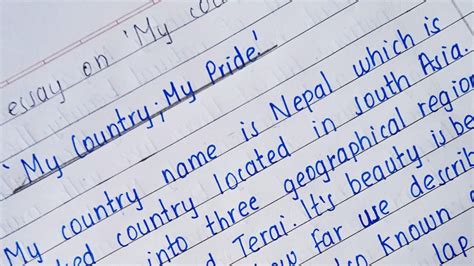 essay on 'My cou
'My Country; My Pride'
My country name is Nepal which is
ked country located in south Asia.
into three geographical region
d Terai. It's beauty is be
how far we describ
so known a
lap